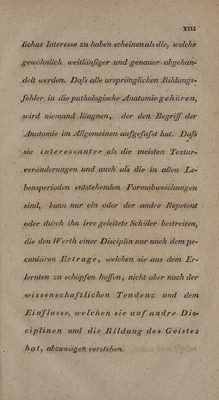 XIII
liches Interesse zu haben scheinen als die, welche
gewöhnlich weitläufiger und genauer abgehan-
delt werden. Daſs alle ursprünglichen Bildungs-
fehler in die pathologische Anatomie gehören,
wird niemand läugnen, der den Begriff der
Anatomie im Allgemeinen aufgefaſst hat. Daſs
sie interessanter als die meisten Textur-
veränderungen und auch als die in allen Le-
bensperioden entstehenden Formabweichungen
sind, kann nur ein oder der andre Repetent
oder durch ihn irre geleitete Schüler bestreiten,
die den Werth einer Disciplin nur nach dem pe-
cuniären Ertrage, welchen sie aus dem Er-
lernten zu schöpfen hoffen, nicht aber nach der
wissenschaftlichen Tendenz und dem
Einflusse, welchen sie auf andre Dis-
ciplinen und die Bildung des Geistes
hat, abzuwägen verstehen.